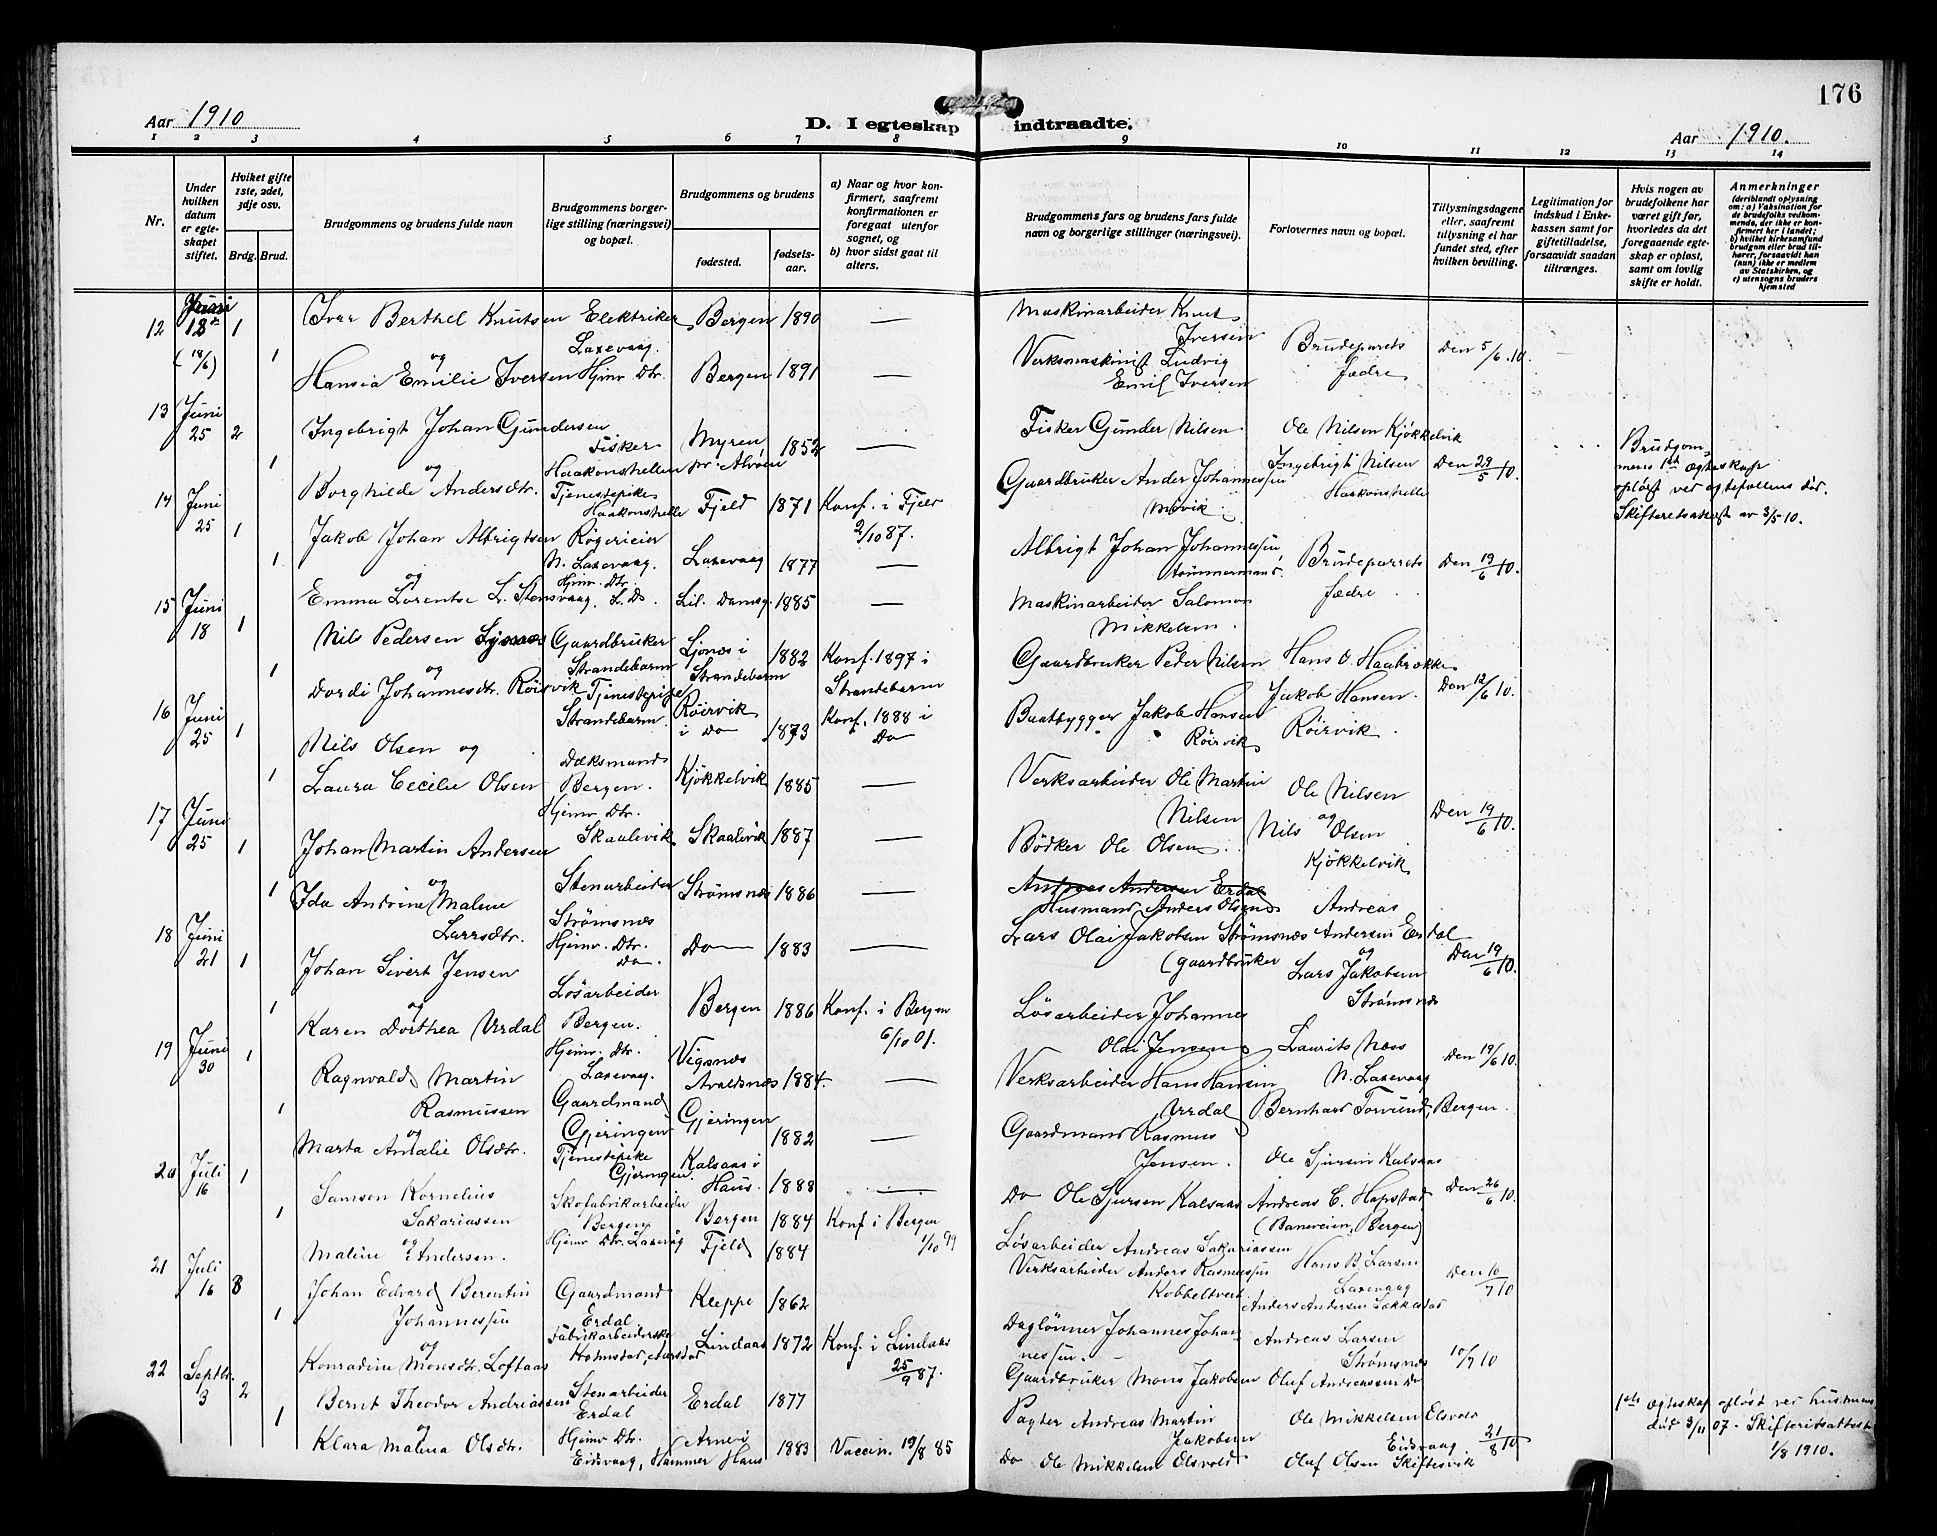 176
Aar 1910
D. I egteskap indtraadte.
Aar 1910.
1 2 3 4 5 6 7 8 9 10 11 12 13 14
Nr.
Under hvilken datum er egte-skapet stiftet.
Hviket gifte 1ste, 2det, 3dje osv.
Brdg. Brud.
Brudgommens og brudens fulde navn
Brudgommens borger-lige stilling (næringsvei) og bopæl.
Brudgommens og brudens
fødested.
fødsels-aar.
a) Naar og hvor kon-firmert, saafremt konfirmationen er foregaat utenfor sognet, og
b) hvor sidst gaat til alters.
Brudgommens fars og brudens fars fulde navn og borgerlige stillinger (næringsvei).
Forlovernes navn og bopæl.
Tillysningsdagene eller, saafremt tillysning ei har fundet sted, efter hvilken bevilling.
Legitimation for indskud i Enke-kassen samt for giftetilladelse, forsaavidt saadan tiltrænges.
Hvis nogen av brudefolkene har været gift før, hvorledes da det foregaaende egte-skap er opløst, samt om lovlig skifte er holdt.
Anmerkninger (deriblandt oplysning om: a) Vaksination for de brudefolks vedkom-mende, der ikke er kon-firmert her i landet; b) hvilket kirkesamfund brudgom eller brud til-hører, forsaavidt han (hun) ikke er medlem av Statskirken, og c) utensogns bruders hjemsted
12 Juni 18de (18/6) 1 Ivar Berthel Knutsen Elektriker Laxevaag. Bergen 1890 — Maskinarbeider Knut Iversen Brudeparets Fædre Den 5/6 10.
1 og Hansia Emilie Iversen Hjmv. Dtr. Bergen 1891 — Verksmaskinist Ludvig Emil Iversen
13 Juni 25 2 Ingebrigt Johan Gundersen Fisker Haakonshellen Myren nr. Alvøen 1852 — Fisker Gunder Nilsen. Ole Nilsen Kjøkkelvik Den 29/5 10. Brudgommens 1ste ægteskap opløst ved ægtefællens død. Skifteretsattest av 3/5 10.
1 og Borghilde Andersdtr. Tjenestepike Haakonshelle Fjeld 1871 Konf. i Fjeld 2/10 87. Gaardbruker Anders Johannessen Movik Ingebrigt Nilsen Haakonshelle
14 Juni 25 1 Jakob Johan Albrigtsen Røgerieier N. Laxevaag. Laxevaag 1877 — Albrigt Johan Johannessen, tømmermand. Brudeparrets Fædre Den 19/6 10.
1 og Emma Lorentse L. Stensvaag. Hjmv. Dtr. L. Do. Lil. Damsg. 1885 — Maskinarbeider Salomon Mikkelsen.
15 Juni 18 1 Nils Pedersen Gaardbruker Strandebarm Ljonæs i Strandebarm 1882 Konf. 1897 i Strandebarm Gaardbruker Peder Nilsen Hans O. Haabrække Den 12/6 10.
1 og Dordi Johannesdtr. Röirvik Tjenestepige Strandebarm Röirvik i Do 1873 Konf. 1888 i Do Baatbygger Jakob Hansen Röirvik Jakob Hansen. Röirvik.
16 Juni 25 1 Nils Olsen og Dæksmand Bergen. Kjökkelvik 1885 — Verksarbeider Ole Martin Nilsen Ole Nilsen og Nils Olsen Kjøkkelvik Den 19/6 10.
1 Laura Cecilie Olsen Hjemv. Dtr. Skaalevik Skaalevik 1887 — Bödker Ole Olsen.
17 Juni 25 1 Johan Martin Andersen Stenarbeider Strömsnæs Strömsnæs 1886 — Andreas Andersen Erdal Husmand Anders Olsen Andreas Andersen Erdal og Lars Jakobsen Strömsnæs Den 19/6 10.
1 og Ida Andrine Malene Larsdtr. Hjemv. Dtr. Do. Do 1883 — Lars Olai Jakobsen Strömsnæs (gaardbruker
18 Juni 21 1 Johan Sivert Jensen Lösarbeider Bergen. Bergen 1886 Konf. i Bergen 6/10 01. Lösarbeider Johannes Olai Jensen Laurits Næss N. Laxevaag Den 19/6 10.
1 og Karen Dorthea Urdal Hjemv. Dtr. Laxevaag. Vigsnæs Avaldsnæs 1884. — Verksarbeider Hans Hansen Urdal Bernhard Torvund, Bergen.
19 Juni 30 1 Ragnvald Martin Rasmussen Gaardmand Gjeringen Gjeringen 1882 — Gaardmand Rasmus Jensen. Ole Sjursen Kalsaas Den 26/6 10.
1 og Marta Amalie Olsdtr. Tjenestepike Gjeringen. Kalsaas i Haus. 1888 — Do Ole Sjursen Kalsaas Andreas C. Hopstad (Baneveien, Bergen)
20 Juli 16 1 Samson Kornelius Sakariassen Skofabrikarbeider Bergen Bergen 1884 Konf i Bergen 1/10 99 Løsarbeider Andreas Sakariassen Hans B. Larsen Laxevaag Den 10/7 10
1 og Maline Andersen. Hjemv. Dtr. Laxevåg Fjeld 1884 Verksarbeider Anders Rasmussen Kobbeltveit. Anders Andersen
21 Juli 16 8 Johan Edvard Berentin Johannessen Gaardmand Erdal Kleppe 1862 Daglönner Johannes Johannessen. Andreas Larsen Strömsnæs 10/7 10
1 og Konradine Monsdtr. Loftaas Fabrikarbeiderske Lindaas 1872 Konf. i Lindaas 25/9 87. Gaardbruker Mons Jakobsen Oluf Andreassen Do
22 Septbr. 3 2 Bernt Theodor Andreassen Stenarbeider Erdal Erdal 1877 Andreas Martin Jakobsen Ole Mikkelsen Olsvold Eidsvaag 21/8 10 1ste ægteskap opløst ved hustruens død 3/11 07. Skifteretsattest 1/8 1910.
1 og Klara Malena Olsdtr. Hjemv Dtr. Eidsvaag, Hammer Arne i Haus 1883 Vaccin. 19/8 85 Do Ole Mikkelsen Olsvold Oluf Olsen Skiftesvik